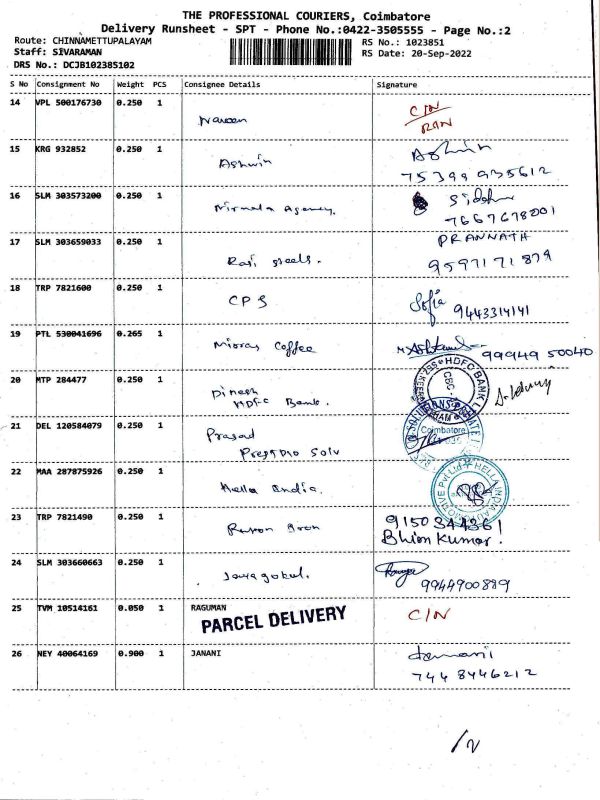 THE PROFESSIONAL COURIERS, Coimbatore
Delivery Runsheet - SPT - Phone No.:0422-3505555 - Page No.:2
Route: CHINNAMETTUPALAYAM
Staff: SIVARAMAN
DRS No.: DCJB102385102
RS No.: 1023851
RS Date: 20-Sep-2022
S No Consignment No Weight PCS Consignee Details Signature
14 VPL 500176730 0.250 1 Naveen C/N
RAN
15 KRG 932852 0.250 1 Ashwin Ashwin
75399 935612
16 SLM 303573200 0.250 1 Nirmala Agency.
7667678001
17 SLM 303659033 0.250 1 Raji steels. PRANNATH
9597171879
18 TRP 7821600 0.250 1 CPS Sofia 9443314141
19 PTL 530041696 0.265 1 Coffee 99949 50040
20 MTP 284477 0.250 1 Dinesh
HDFC Bank. HDFC BANK
21 DEL 120584079 0.250 1 Prasad
Solv Coimbatore
22 MAA 287875926 0.250 1 Hella India. HELLA INDIA AUTOMOTIVE Pvt Ltd
23 TRP 7821490 0.250 1
Bhion Kumar.
24 SLM 303660663 0.250 1 Jayagokul. 9944900889
25 TVM 10514161 0.050 1 RAGUMAN C/N
PARCEL DELIVERY
26 NEY 40064169 0.900 1 JANANI Janani
744 8446212